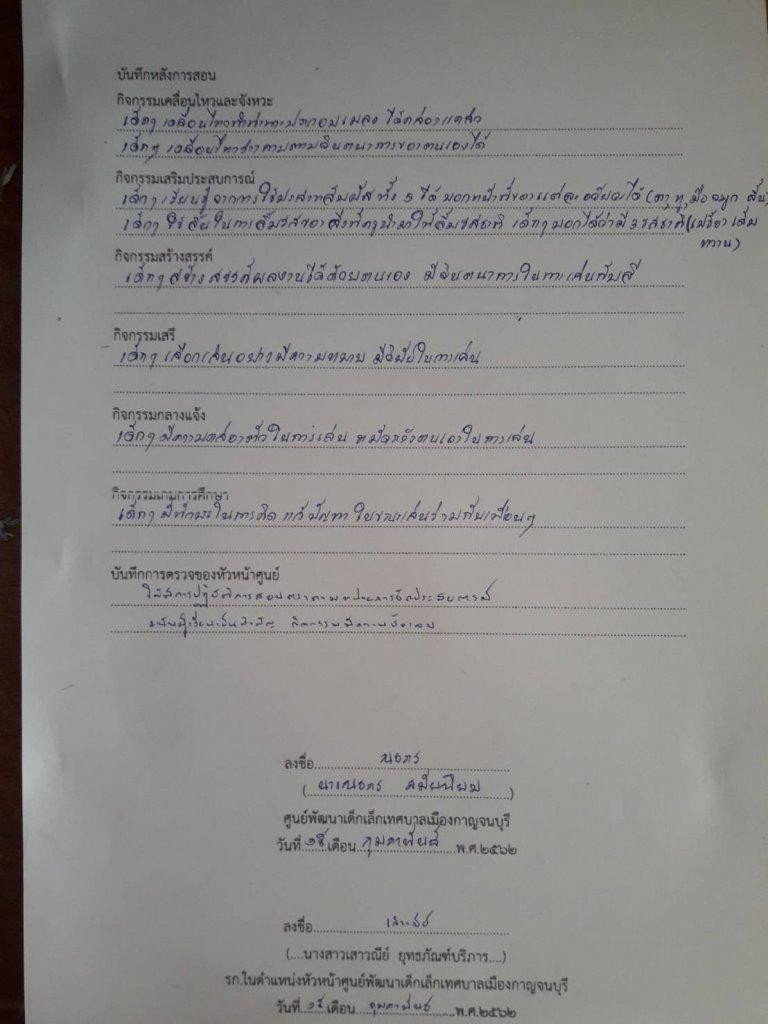 บันทึกหลังการสอน
กิจกรรมเคลื่อนไหวและจังหวะ
เด็กๆ เคลื่อนไหวทำท่าทางประกอบเพลง ได้คล่องแคล่ว
เด็กๆ เคลื่อนไหวร่างกายตามจินตนาการของตนเองได้
กิจกรรมเสริมประสบการณ์
เด็กๆ เรียนรู้จากการใช้ประสาทสัมผัสทั้ง 5 ได้ บอกหน้าที่ของแต่ละอวัยวะได้ (ตา หู มือ จมูก ลิ้น)
เด็กๆ ใช้ลิ้นในการลิ้มรสของสิ่งที่ครูนำมาให้ลิ้มรสชาติ เด็กๆ บอกได้ว่ามี 3 รสชาติ (เปรี้ยว เค็ม
หวาน)
กิจกรรมสร้างสรรค์
เด็กๆ สร้างสรรค์ผลงานได้ด้วยตนเอง มีจินตนาการในการเล่นกับสี
กิจกรรมเสรี
เด็กๆ เลือกเล่นอย่างมีความหมาย มีวินัยในการเล่น
กิจกรรมกลางแจ้ง
เด็กๆ มีความคล่องตัวในการเล่น ระมัดระวังตนเองในการเล่น
กิจกรรมเกมการศึกษา
เด็กๆ มีทักษะในการคิด แก้ปัญหา ในขณะเล่นร่วมกับเพื่อนๆ
บันทึกการตรวจของหัวหน้าศูนย์
ได้มีการปฏิบัติการสอนตรงตามแผนการจัดประสบการณ์
เน้นผู้เรียนเป็นสำคัญ กิจกรรมมีความ
ลงชื่อ
ศูนย์พัฒนาเด็กเล็กเทศบาลเมืองกาญจนบุรี
วันที่ ๑๕ เดือน กุมภาพันธ์ พ.ศ.๒๕๖๒
ลงชื่อ
(....นางสาวเสาวณีย์ ยุทธภัณฑ์บริภาร....)
รก.ในตำแหน่งหัวหน้าศูนย์พัฒนาเด็กเล็กเทศบาลเมืองกาญจนบุรี
วันที่ ๑๕ เดือน กุมภาพันธ์ พ.ศ.๒๕๖๒